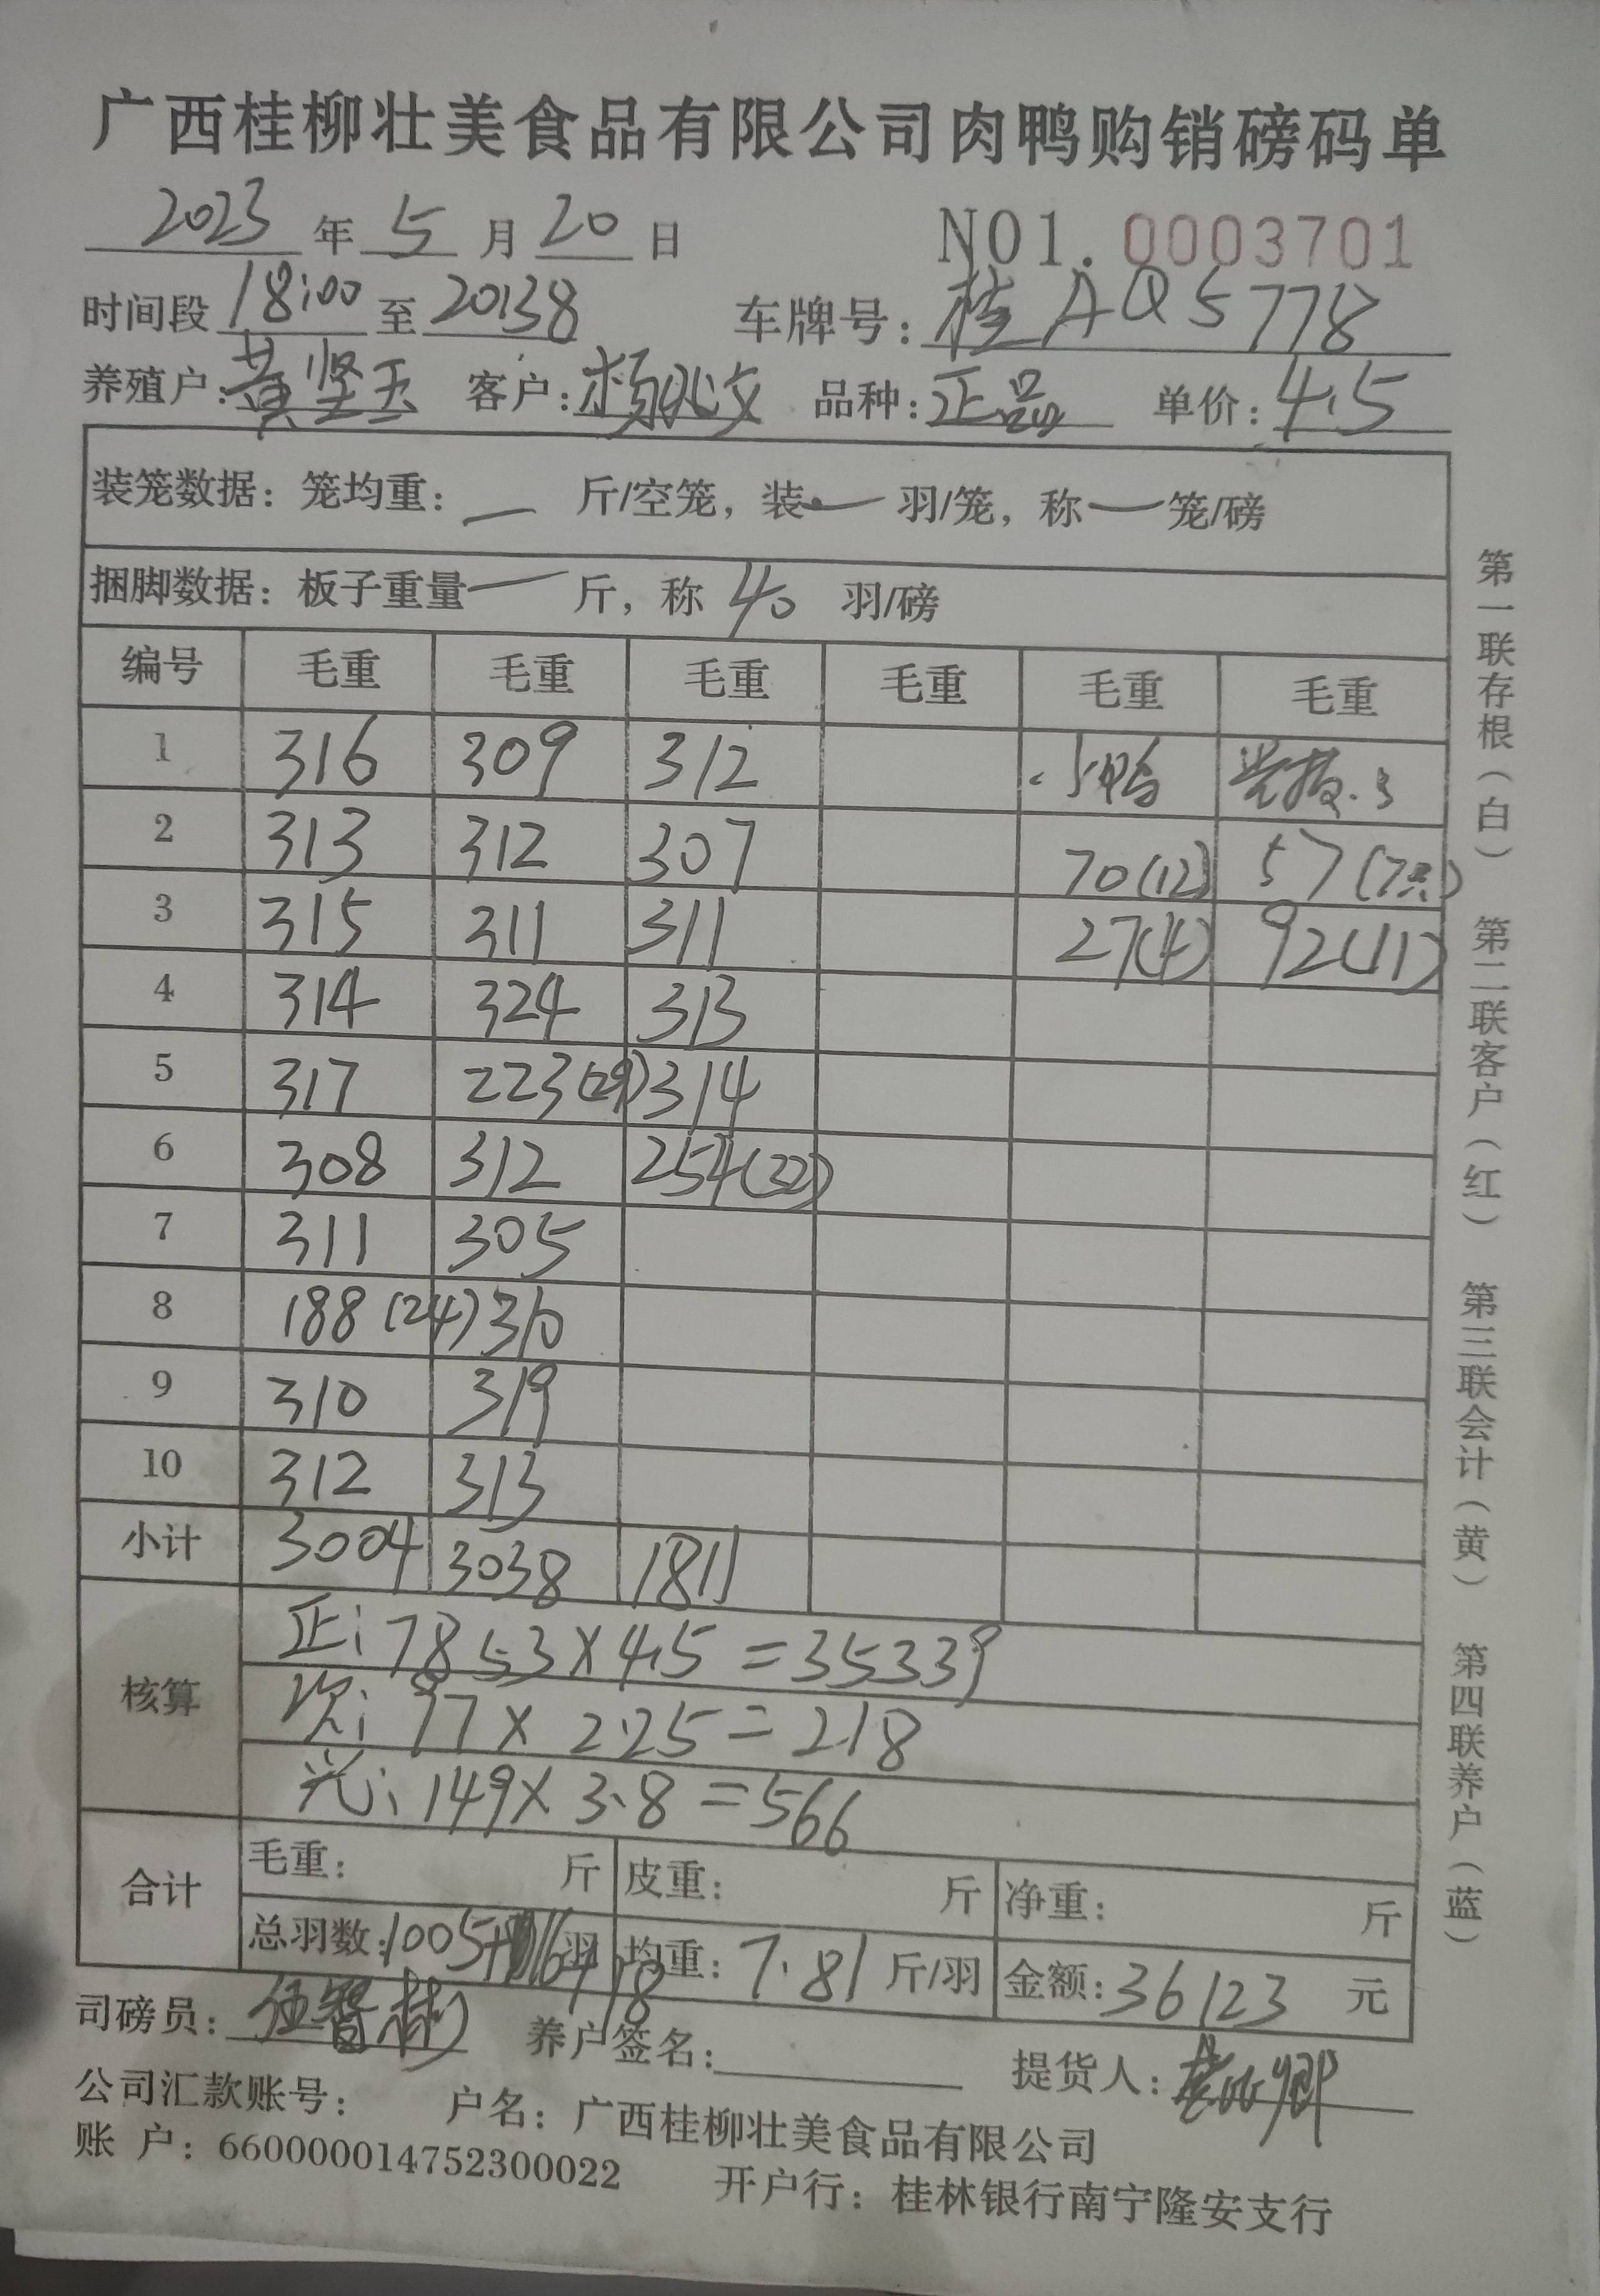 广西桂柳壮美食品有限公司肉鸭购销磅码单
2023 年 5 月 20 日 NO1.0003701
时间段 18:00 至 20:38 车牌号: 桂AQ5778
养殖户: 黄坚玉 客户: 品种: 正品 单价: 4.5
装笼数据: 笼均重: — 斤/空笼, 装 — 羽/笼, 称 — 笼/磅
捆脚数据: 板子重量 — 斤, 称 40 羽/磅
编号 毛重 毛重 毛重 毛重 毛重 毛重
1 316 309 312 小鸭
2 313 312 307 70(12) 57(7只)
3 315 311 311 27(4) 92(11)
4 314 324 313
5 317 223(29) 314
6 308 312 254(32)
7 311 305
8 188(24) 310
9 310 319
10 312 313
小计 3004 3038 1811
核算 正: 7853×4.5=35339
次: 97×2.25=218
光: 149×3.8=566
合计 毛重: 斤 皮重: 斤 净重: 斤
总羽数: 1005+16+18 羽 均重: 7.81 斤/羽 金额: 36123 元
司磅员: 伍智彬 养户签名: 提货人:
公司汇款账号: 户名: 广西桂柳壮美食品有限公司
账 户: 660000014752300022 开户行: 桂林银行南宁隆安支行
第一联存根(白) 第二联客户(红) 第三联会计(黄) 第四联养户(蓝)